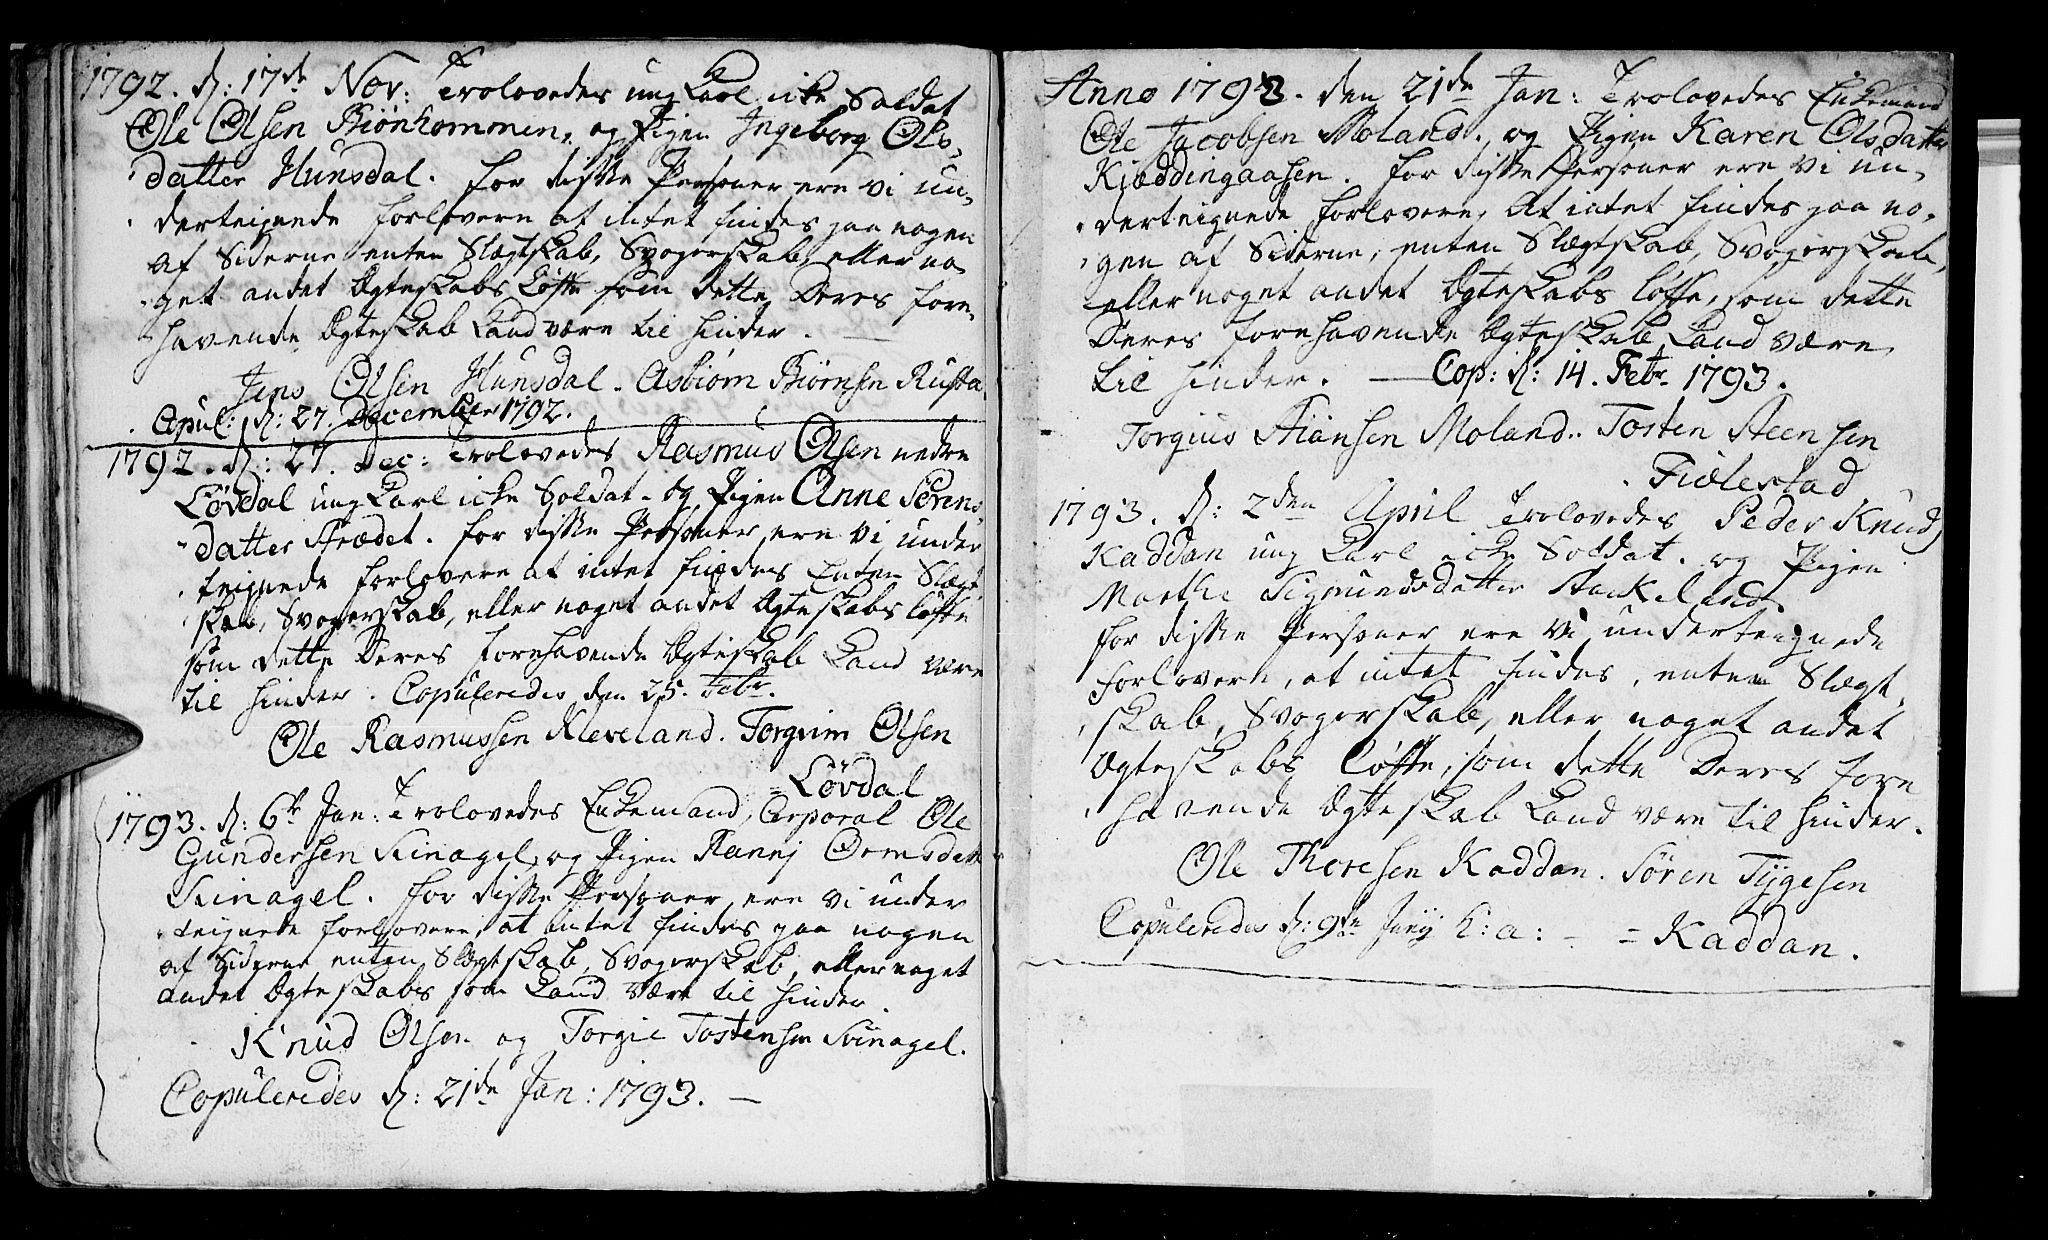 1792. d: 17de Nov: Trolovedes ung Karl icke Soldat
Ole Olsen Biönkommen, og Pigen Ingeborg Ols-
datter Hunsdal. for disse Personer ere vi un-
derteignede forlovere at intet findes paa nogen
af Siderne enten Slægtskab, Svogerskab, eller no
get andet Ægteskabs Löfte som dette Deres fore-
havende Ægteskab kand være til hinder.
Jens Olsen Hunsdal. Asbiörn Biörnsen Rusta
Copul: d: 27. December 1792.
1792. d: 27. Dec: Trolovedes Rasmus Olsen nedre
Lövdal ung Karl icke Soldat. og Pigen Anne Sörens-
datter Trædet. for disse Personer ere vi under
teignede forlovere at intet findes Enten Slægt
skab, Svogerskab, eller noget andet Ægteskabs löfte
som dette Deres forehavende Ægteskab kand være
til hinder. Copuleredes den 25. Febr.
Ole Rasmussen Kleveland. Torgrim Olsen
Lövdal
1793. d: 6te Jan: Trolovedes Enkemand, Corporal Ole
Gundersen Svinagel, og Pigen Ormsdatt
Svinagel. for disse Personer, ere vi under
teignede forlovere, at intet findes paa nogen
af Siderne enten Slægtskab, Svogerskab, eller noget
andet Ægteskabs som kand være til hinder.
Knud Olsen og Torgie Tostensen Svinagel.
Copuleredes d: 21de Jan: 1793. —
Anno 1793. den 21de Jan: Trolovedes Enkemand
Ole Jacobsen Moland. og Pigen Karen Olsdatter
Kiæddingaasen. for disse Personer ere vi un-
derteignede forlovere, At intet findes paa no-
gen af Siderne, enten Slægtskab, Svogerskab,
eller noget andet Ægteskabs löffte, som dette
Deres forehavende Ægteskab kand være
til hinder. — Cop: d: 14. Febr. 1793.
Torgius Moland. Tosten Steensen
Fiælestad
1793. d: 2den April Trolovedes Peder Knuds
Kaddan ung Karl icke Soldat. og Pigen
Marthe Sigmundsdatter
for disse Personer ere vi underteignede
forlovere, at intet findes, enten Slægt-
skab, Svogerskab, eller noget andet
Ægteskabs Löffte, som dette Deres fore
havende Ægteskab kand være til hinder.
Ole Theresen Kaddan. Sören Tygesen
Copuleredes d: 9de Juny h: a: - = Kaddan.